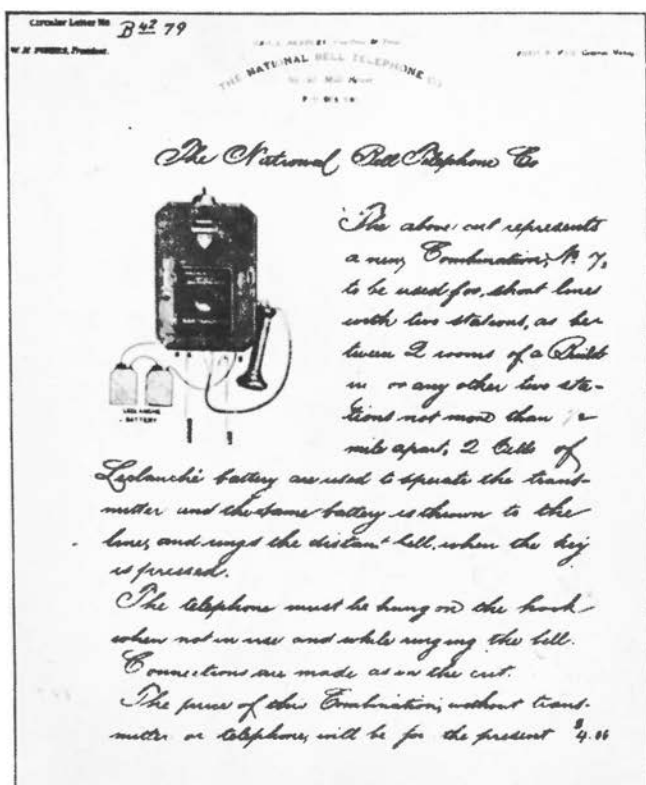 Circular Letter No B 42 79
W. H. FORBES, President.
THE NATIONAL BELL TELEPHONE CO
The National Bell Telephone Co
The above cut represents
a new Combination, No 7,
to be used for short lines
with two stations, as be-
tween 2 rooms of a Build
in or any other two sta-
tions not more than 1/2
mile apart, 2 Cells of
LECLANCHE
BATTERY
Leclanché battery are used to operate the trans-
mitter and the same battery is thrown to the
line, and rings the distant bell, when the key
is pressed.
The telephone must be hung on the hook
when not in use and while ringing the bell.
Connections are made as in the cut.
The price of this Combination, without trans-
mitter or telephone, will be for the present $